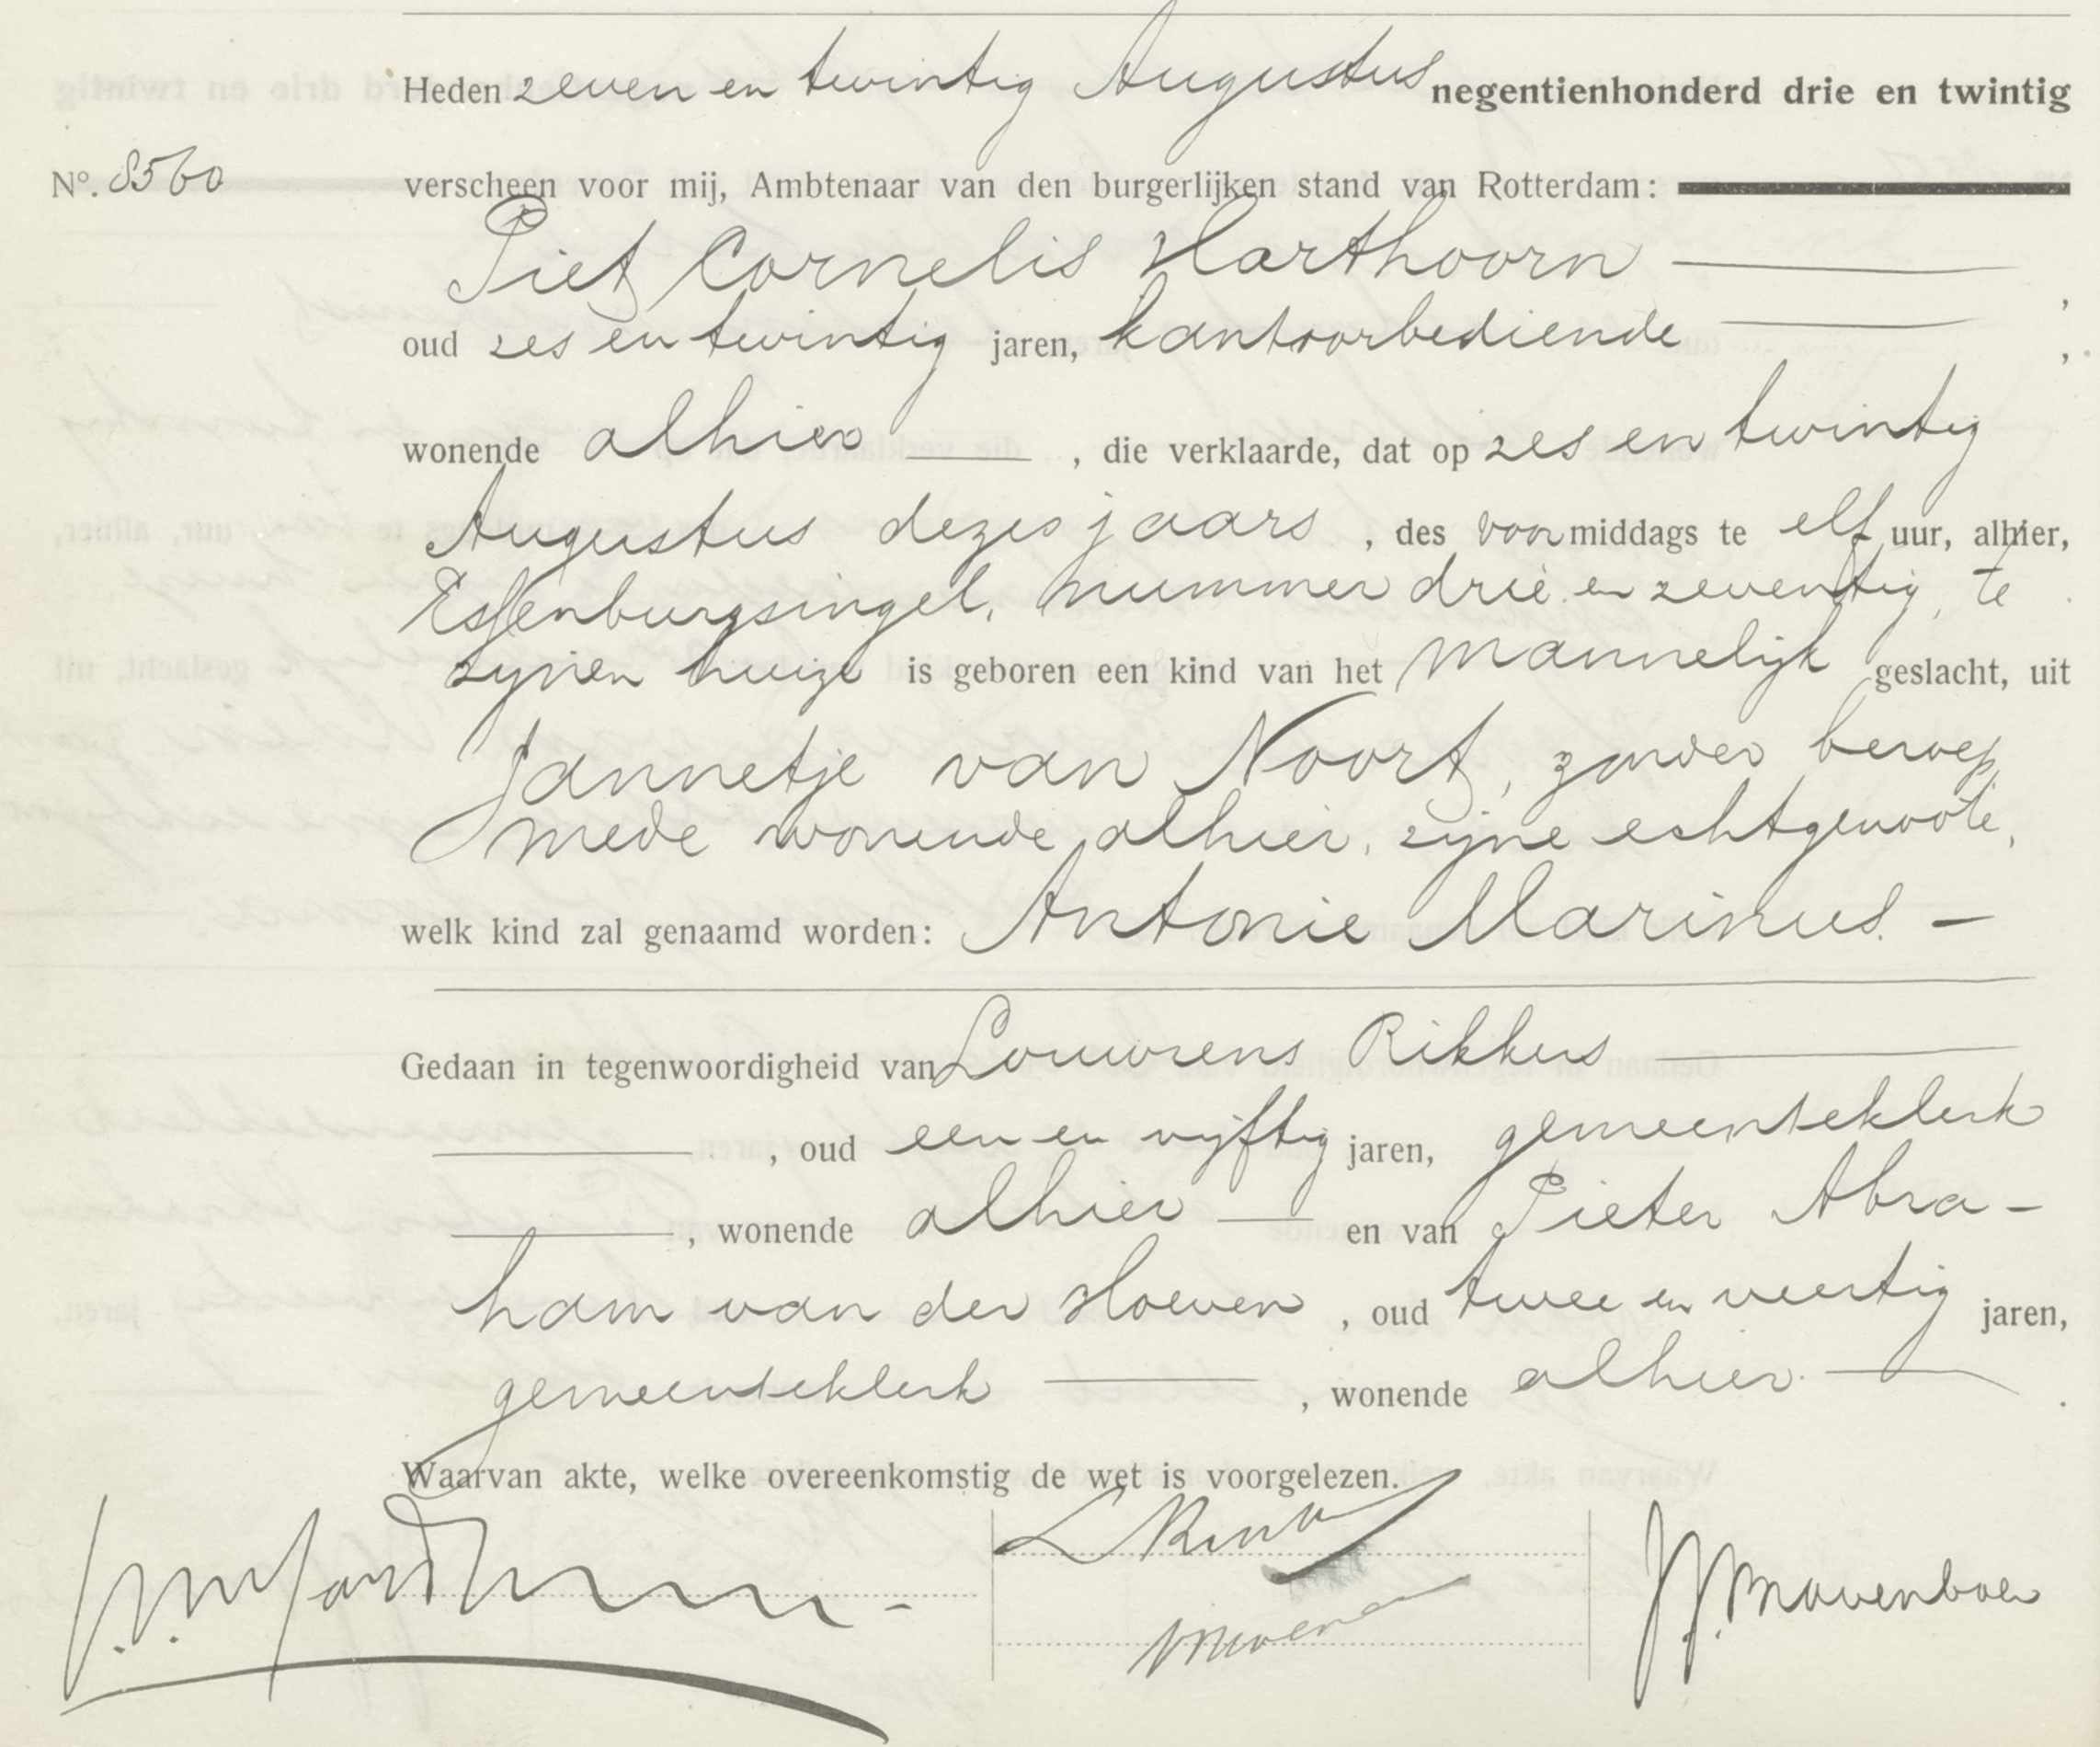 Heden zeven en twintig Augustus negentienhonderd drie en twintig
Nº. 8560 verscheen voor mij, Ambtenaar van den burgerlijken stand van Rotterdam:
Piet Cornelis Harthoorn ,
oud zes en twintig jaren, kantoorbediende ,
wonende alhier , die verklaarde, dat op zes en twintig
Augustus dezes jaars , des voormiddags te elf uur, alhier,
Essenburgsingel, nummer drie en zeventig, te
zijnen huize is geboren een kind van het mannelijk geslacht, uit
Jannetje van Noort, zonder beroep,
mede wonende alhier, zijne echtgenoote,
welk kind zal genaamd worden: Antonie Marinus. -
Gedaan in tegenwoordigheid van Louwrens Rikkers
, oud een en vijftig jaren, gemeenteklerk
, wonende alhier en van Pieter Abra-
ham van der Hoeven , oud twee en veertig jaren,
gemeenteklerk , wonende alhier .
Waarvan akte, welke overeenkomstig de wet is voorgelezen.